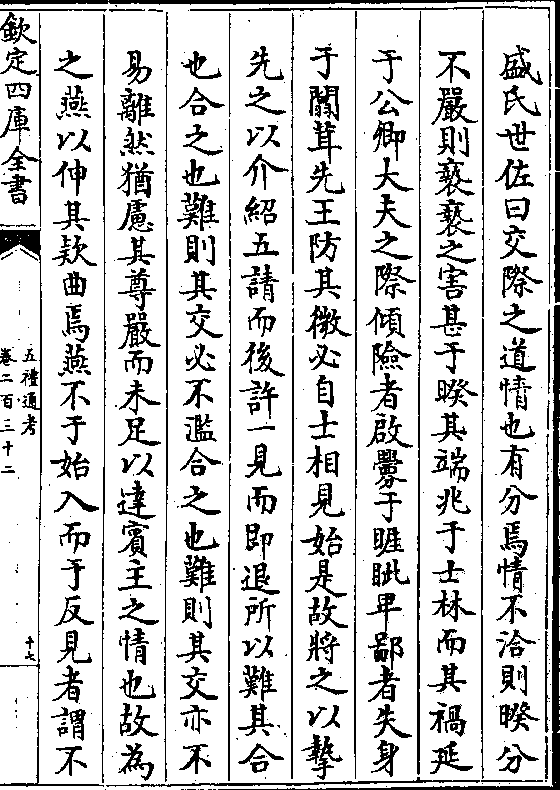 盛氏世佐曰交際之道情也有分焉情不洽則暌分
不嚴則䙝䙝之害甚于暌其端兆于士林而其禍延
于公卿大夫之際傾險者啟釁于睚眦卑鄙者失身
于闒茸先王防其微必自士相見始是故將之以摯
先之以介紹五請而後許一見而即退所以難其合
也合之也難則其交必不濫合之也難則其交亦不
易離然猶慮其尊嚴而未足以達賓主之情也故為
之燕以伸其欵曲焉燕不于始入而于反見者謂不
欽定四庫全書
五禮通考
卷二百三十二
十七